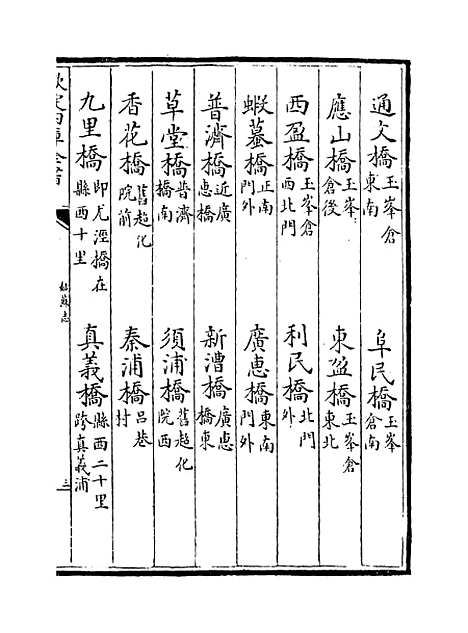 通文橋玉峯倉東南 阜民橋玉峯倉南
應山橋玉峯倉後 東盈橋玉峯倉東北
西盈橋玉峯倉西北門 利民橋北門外
蝦蟇橋正南門外 廣惠橋東南門外
普濟橋近廣惠橋 新漕橋廣惠橋東
草堂橋普濟橋南 須浦橋舊超化院西
香花橋舊超化院前 秦浦橋呂巷村
九里橋即尤涇橋在縣西十里 真義橋縣西二十里跨真義浦
欽定四庫全書 姑蘇志 三